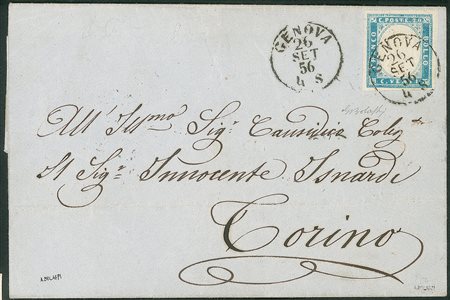 GENOVA
26
SET
56
4 S
C. POSTE 20
FRANCO
BOLLO
GENOVA
26
SET
56
4 S
All' Illmo Sigr Causidico Colegto
Il Sigr Innocente Isnardi
Torino